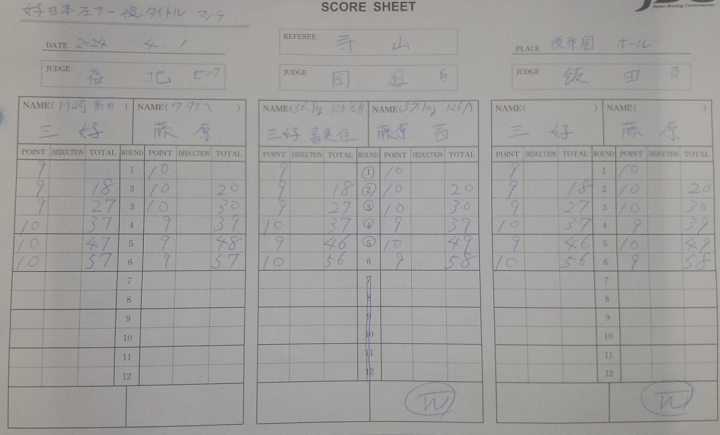 SCORE SHEET
全日本フライ級タイトル マッチ
DATE 2024 4. 1
REFEREE 寺 山
PLACE 後楽園 ホール
JUDGE
JUDGE
JUDGE 飯 田
NAME( 川崎新田 ) NAME( ワタナベ )
三 好 藤 原
POINT DEDUCTION TOTAL ROUND POINT DEDUCTION TOTAL
9 1 10
9 18 2 10 20
9 27 3 10 30
10 37 4 9 39
10 47 5 9 48
10 57 6 9 57
7
8
9
10
11
12
NAME( ) NAME( )
三好 喜美佳 藤原 茜
POINT DEDUCTION TOTAL ROUND POINT DEDUCTION TOTAL
9 1 10
9 18 2 10 20
9 27 3 10 30
10 37 4 9 39
9 46 5 10 49
10 56 6 9 58
7
8
9
10
11
12
W
NAME( ) NAME( )
三 好 藤 原
POINT DEDUCTION TOTAL ROUND POINT DEDUCTION TOTAL
9 1 10
9 18 2 10 20
9 27 3 10 30
10 37 4 9 39
9 46 5 10 49
10 56 6 9 58
7
8
9
10
11
12
W